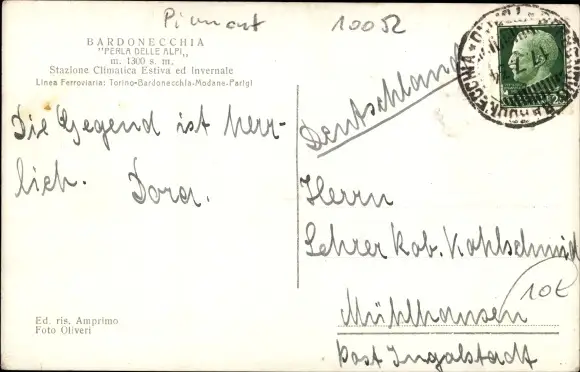 Piemont
10052
BARDONECCHIA
"PERLA DELLE ALPI,,
m. 1300 s. m.
Stazione Climatica Estiva ed Invernale
Linea Ferroviaria: Torino-Bardonecchia-Modane-Parigi
Die Gegend ist herr-
lich. Dora.
Ed. ris. Amprimo
Foto Oliveri
BARDONECCHIA
Deutschland
Herrn
Lehrer Rob. Kohlschmid
10€
Mühlhausen
Post Ingolstadt